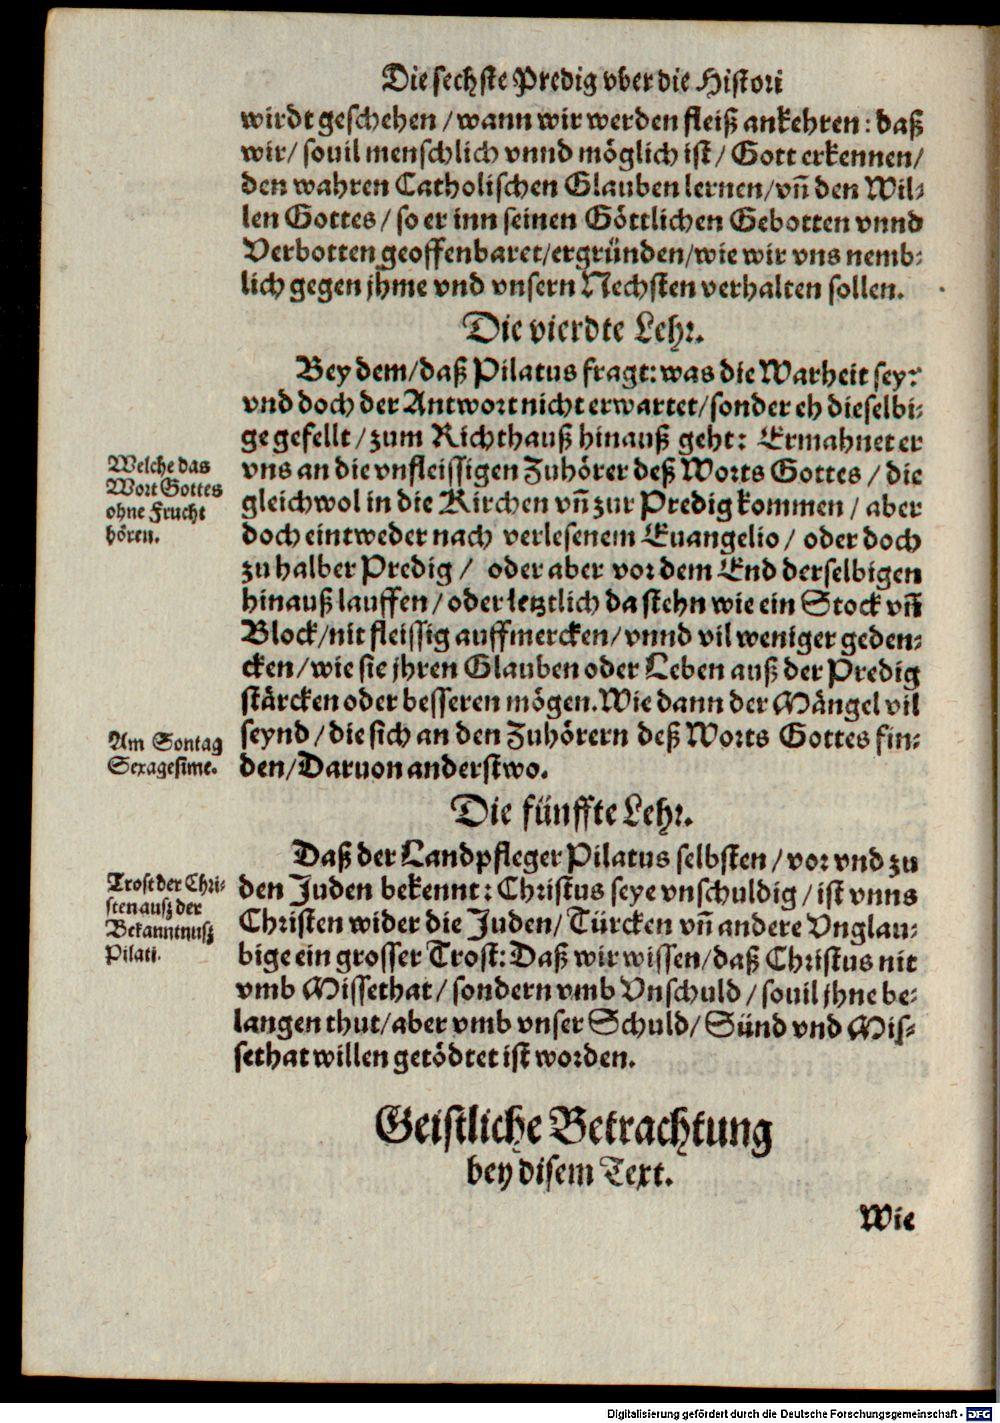 Die sechste Predig vber die Histori
wirdt geschehen / wann wir werden fleiß ankehren : daß
wir / souil menschlich vnnd möglich ist / Gott erkennen /
den wahren Catholischen Glauben lernen / vñ den Wil-
len Gottes / so er inn seinen Göttlichen Gebotten vnnd
Verbotten geoffenbaret / ergründen / wie wir vns nemb-
lich gegen jhme vnd vnsern Nechsten verhalten sollen.
Die vierdte Lehr.
Bey dem / daß Pilatus fragt : was die Warheit sey?
vnd doch der Antwort nicht erwartet / sonder eh dieselbi-
ge gefellt / zum Richthauß hinauß geht : Ermahnet er
vns an die vnfleissigen Zuhörer deß Worts Gottes / die
gleichwol in die Kirchen vñ zur Predig kommen / aber
doch eintweder nach verlesenem Euangelio / oder doch
zu halber Predig / oder aber vor dem End derselbigen
hinauß lauffen / oder letztlich da stehn wie ein Stock vñ
Block / nit fleissig auffmercken / vnnd vil weniger geden-
cken / wie sie jhren Glauben oder Leben auß der Predig
stärcken oder besseren mögen. Wie dann der Mängel vil
seynd / die sich an den Zuhörern deß Worts Gottes fin-
den / Daruon anderstwo.
Welche das
Wort Gottes
ohne Frucht
hören.
Am Sontag
Sexagesime.
Die fünffte Lehr.
Daß der Landpfleger Pilatus selbsten / vor vnd zu
den Juden bekennt : Christus seye vnschuldig / ist vnns
Christen wider die Juden / Türcken vñ andere Vnglau-
bige ein grosser Trost : Daß wir wissen / daß Christus nit
vmb Missethat / sondern vmb Vnschuld / souil jhne be-
langen thut / aber vmb vnser Schuld / Sünd vnd Mis-
sethat willen getödtet ist worden.
Trost der Chri-
sten auß der
Bekanntnuß
Pilati.
Geistliche Betrachtung
bey disem Text.
Wie
Digitalisierung gefördert durch die Deutsche Forschungsgemeinschaft - DFG